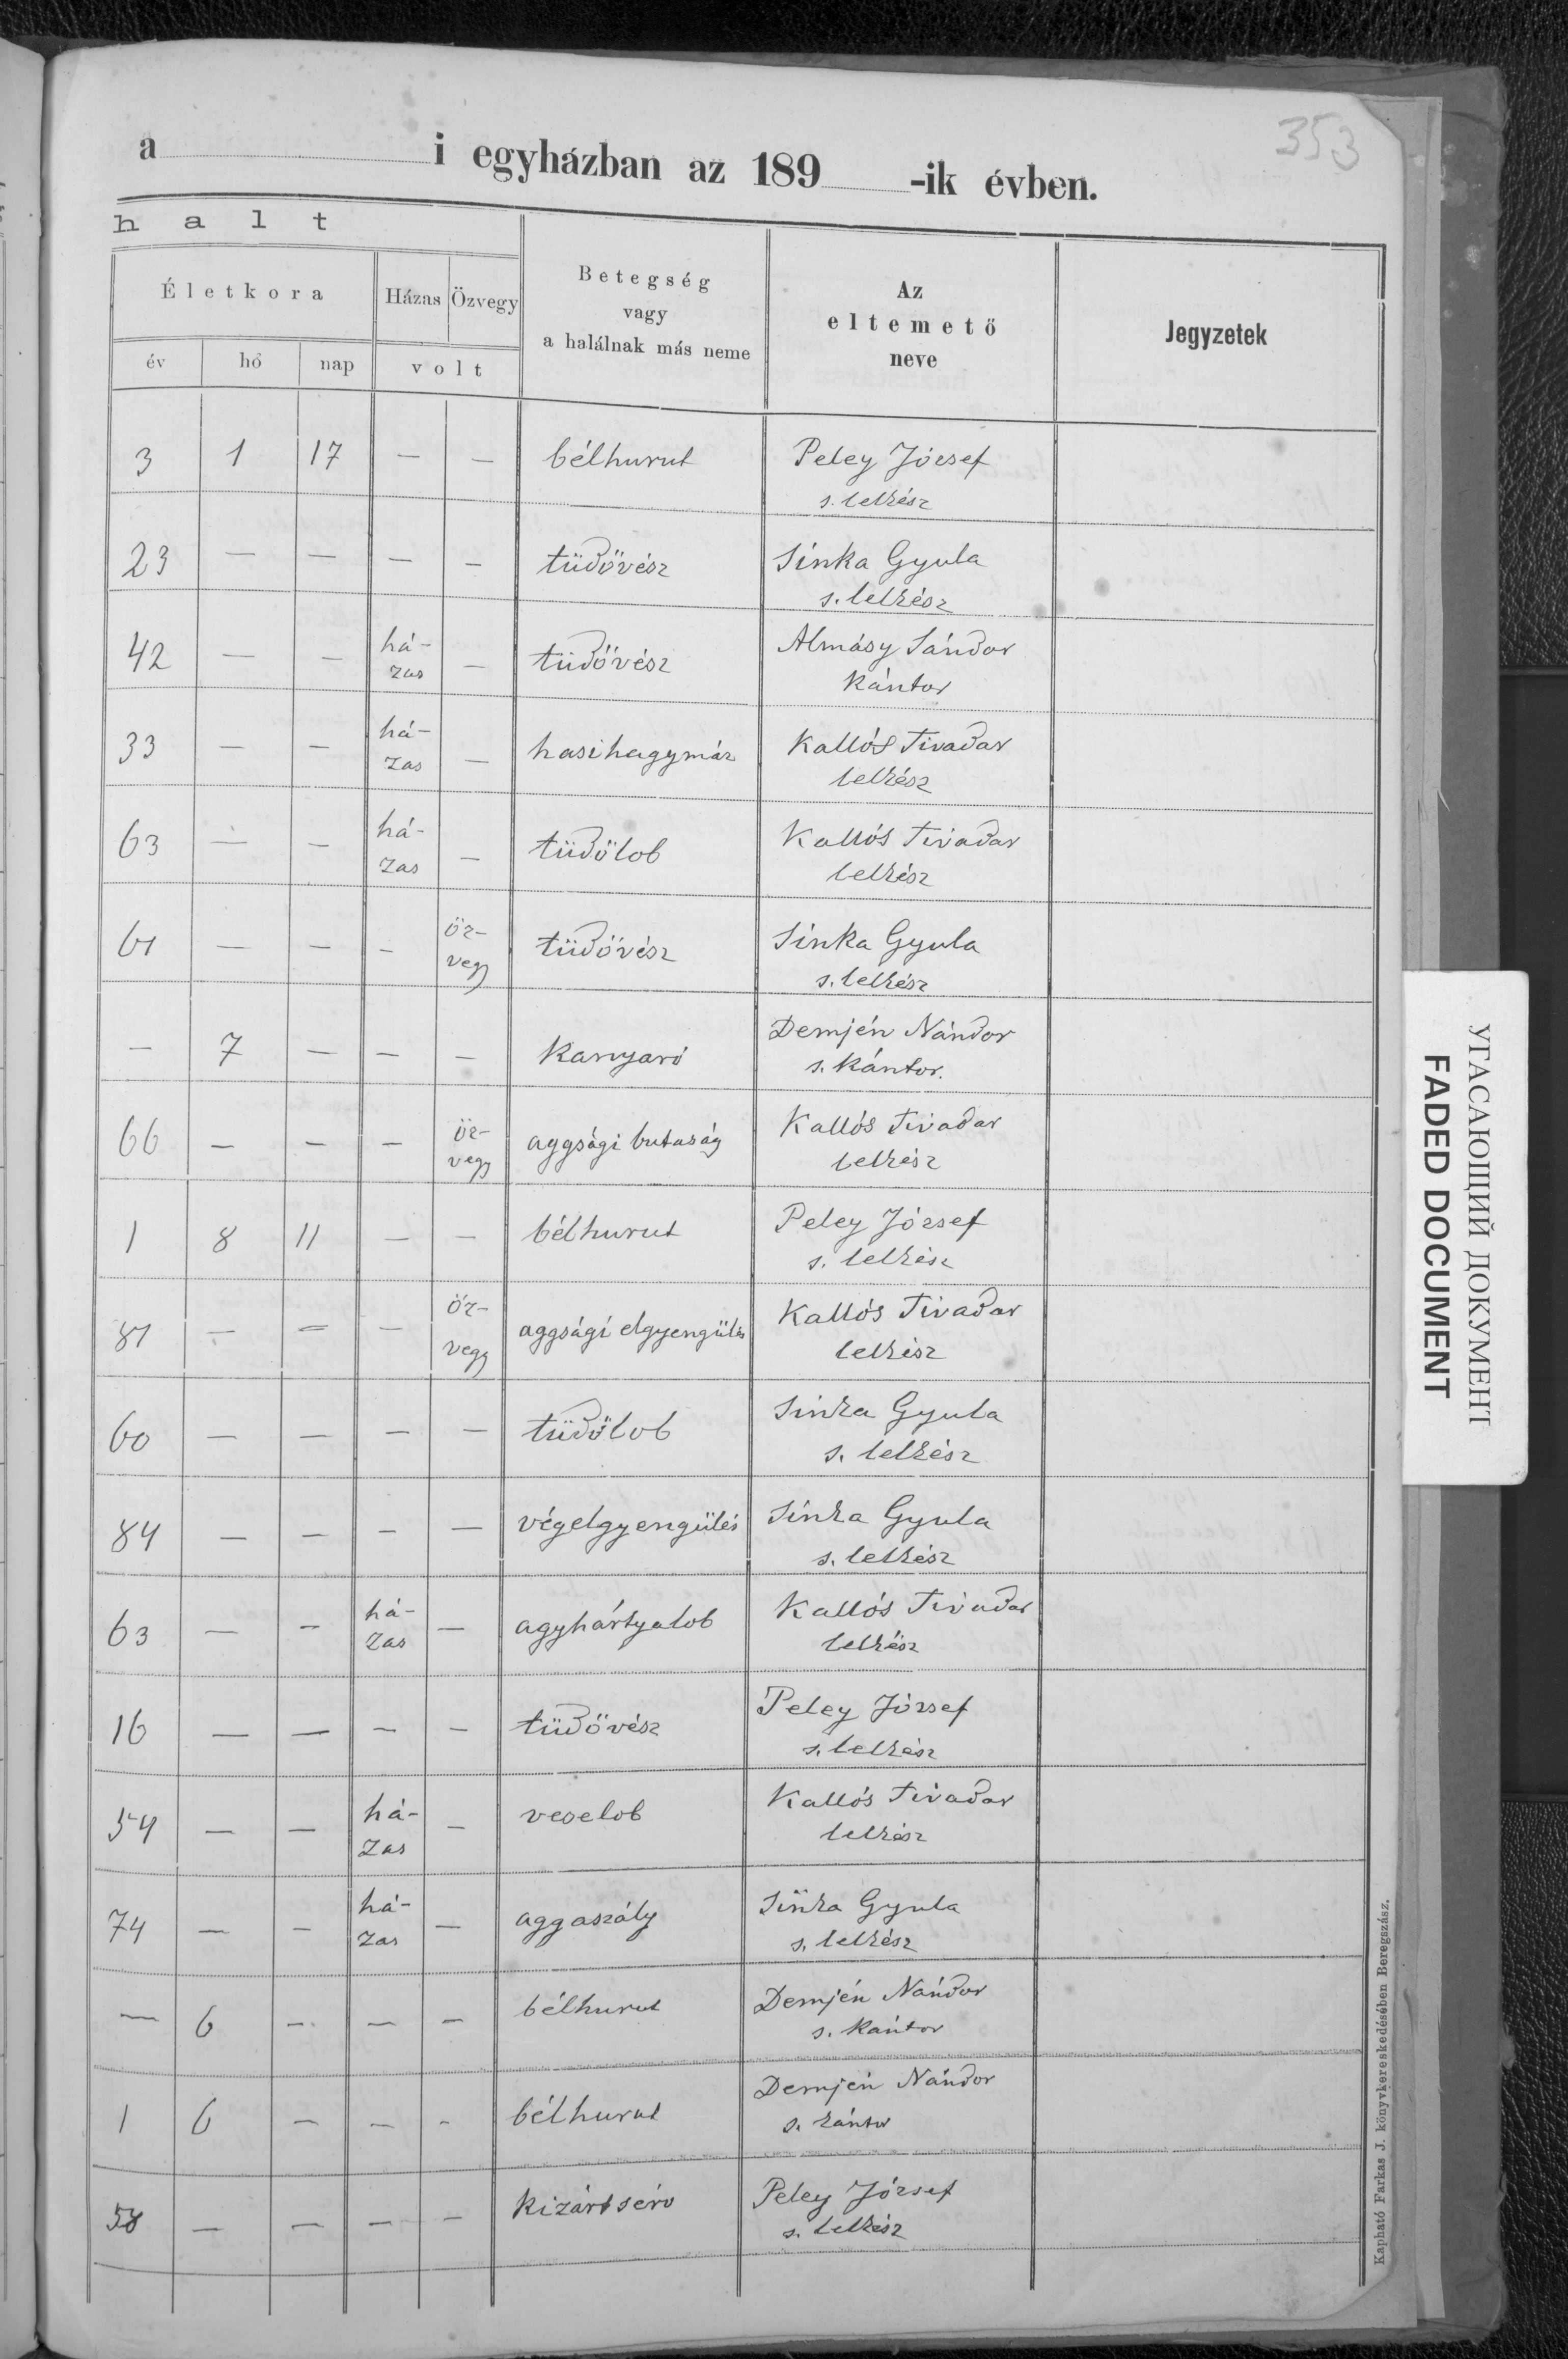 353
a i egyházban az 189 -ik évben.
halt
Életkora Házas Özvegy Betegség vagy a halálnak más neme Az eltemető neve Jegyzetek
év hó nap volt
3 1 17 — — bélhurut Peley József
s. lelkész
23 — — — — tüdővész Sinka Gyula
s. lelkész
42 — — há- — tüdővész Almásy Sándor
zas kántor
33 — — há- — hasihagymáz Kallós Tivadar
zas lelkész
63 — — há- — tüdőlob Kallós Tivadar
zas lelkész
61 — — — öz- tüdővész Sinka Gyula
vegy s. lelkész
— 7 — — — Kanyaró Demjén Nándor
s. kántor.
66 — — — öz- aggsági butaság Kallós Tivadar
vegy lelkész
1 8 11 — — bélhurut Peley József
s. lelkész
81 — — — öz- aggsági elgyengülés Kallós Tivadar
vegy lelkész
60 — — — — tüdőlob Sinka Gyula
s. lelkész
84 — — — — végelgyengülés Sinka Gyula
s. lelkész
63 — — há- — agyhártyalob Kallós Tivadar
zas lelkész
16 — — — — tüdővész Peley József
s. lelkész
54 — — há- — veselob Kallós Tivadar
zas lelkész
74 — — há- — aggaszály Sinka Gyula
zas s. lelkész
— 6 — — — bélhurut Demjén Nándor
s. kántor
1 6 — — - bélhurut Demjén Nándor
s. kántor
58 — — — — Kizárt sérv Peley József
s. lelkész
Kapható Farkas J. könyvkereskedésében Beregszász.
УГАСАЮЩИЙ ДОКУМЕНТ
FADED DOCUMENT